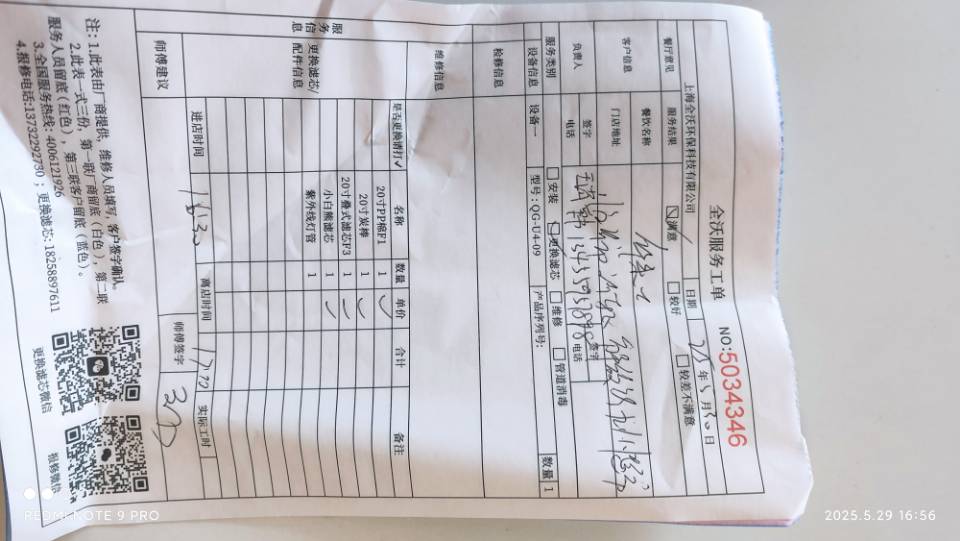 全沃服务工单
NO:5034346
上海全沃环保科技有限公司 日期 年 月 日
餐厅意见 服务结果 满意 较好 较差不满意
客户信息 餐饮名称
门店地址
负责人 签字 签字
电话 电话
服务类别 安装 更换滤芯 维修 管道消毒
设备信息 设备一 型号:QG-U4-09 产品序列号: 数量 1
检修信息
维修信息
服务信息
更换滤芯/配件信息 是否更换请打✓ 名称 数量 单价 合计 备注
20寸PP棉F1 1 ✓
20寸炭棒 1 ✓
20寸叠式滤芯P3 1 ✓
小白熊滤芯 1 ✓
紫外线灯管 1
进店时间 16:30 离店时间 17:00 实际工时
师傅建议 师傅签字
注: 1.此表由厂商提供, 维修人员填写, 客户签字确认。
2.此表一式三份, 第一联厂商留底(白色), 第二联
服务人员留底(红色), 第三联客户留底(蓝色)。
3.全国服务热线: 4006121926
4.报修电话:13732292730; 更换滤芯: 18258897611
更换滤芯微信 报修微信
REDMI NOTE 9 PRO
2025.5.29 16:56